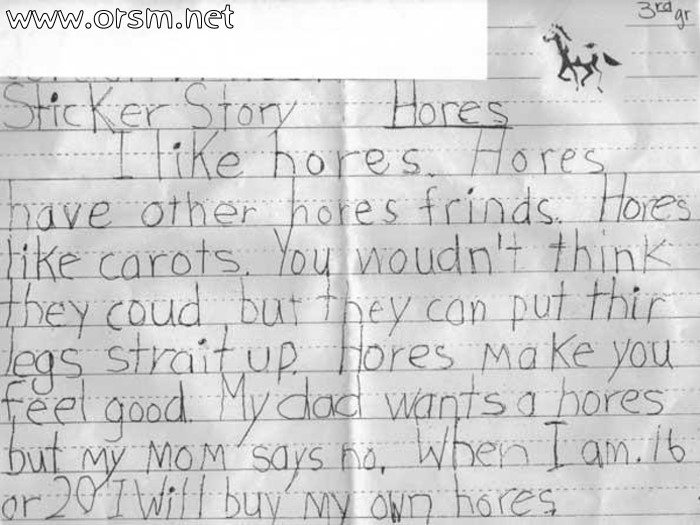 www.orsm.net
3rd gr
Sticker Story Hores
I like hores. Hores
have other hores frinds. Hores
like carots. You woudn't think
they coud but they can put thir
legs strait up. Hores make you
feel good. My dad wants a hores
but my mom says no. When I am. 16
or 20 I will buy my own hores